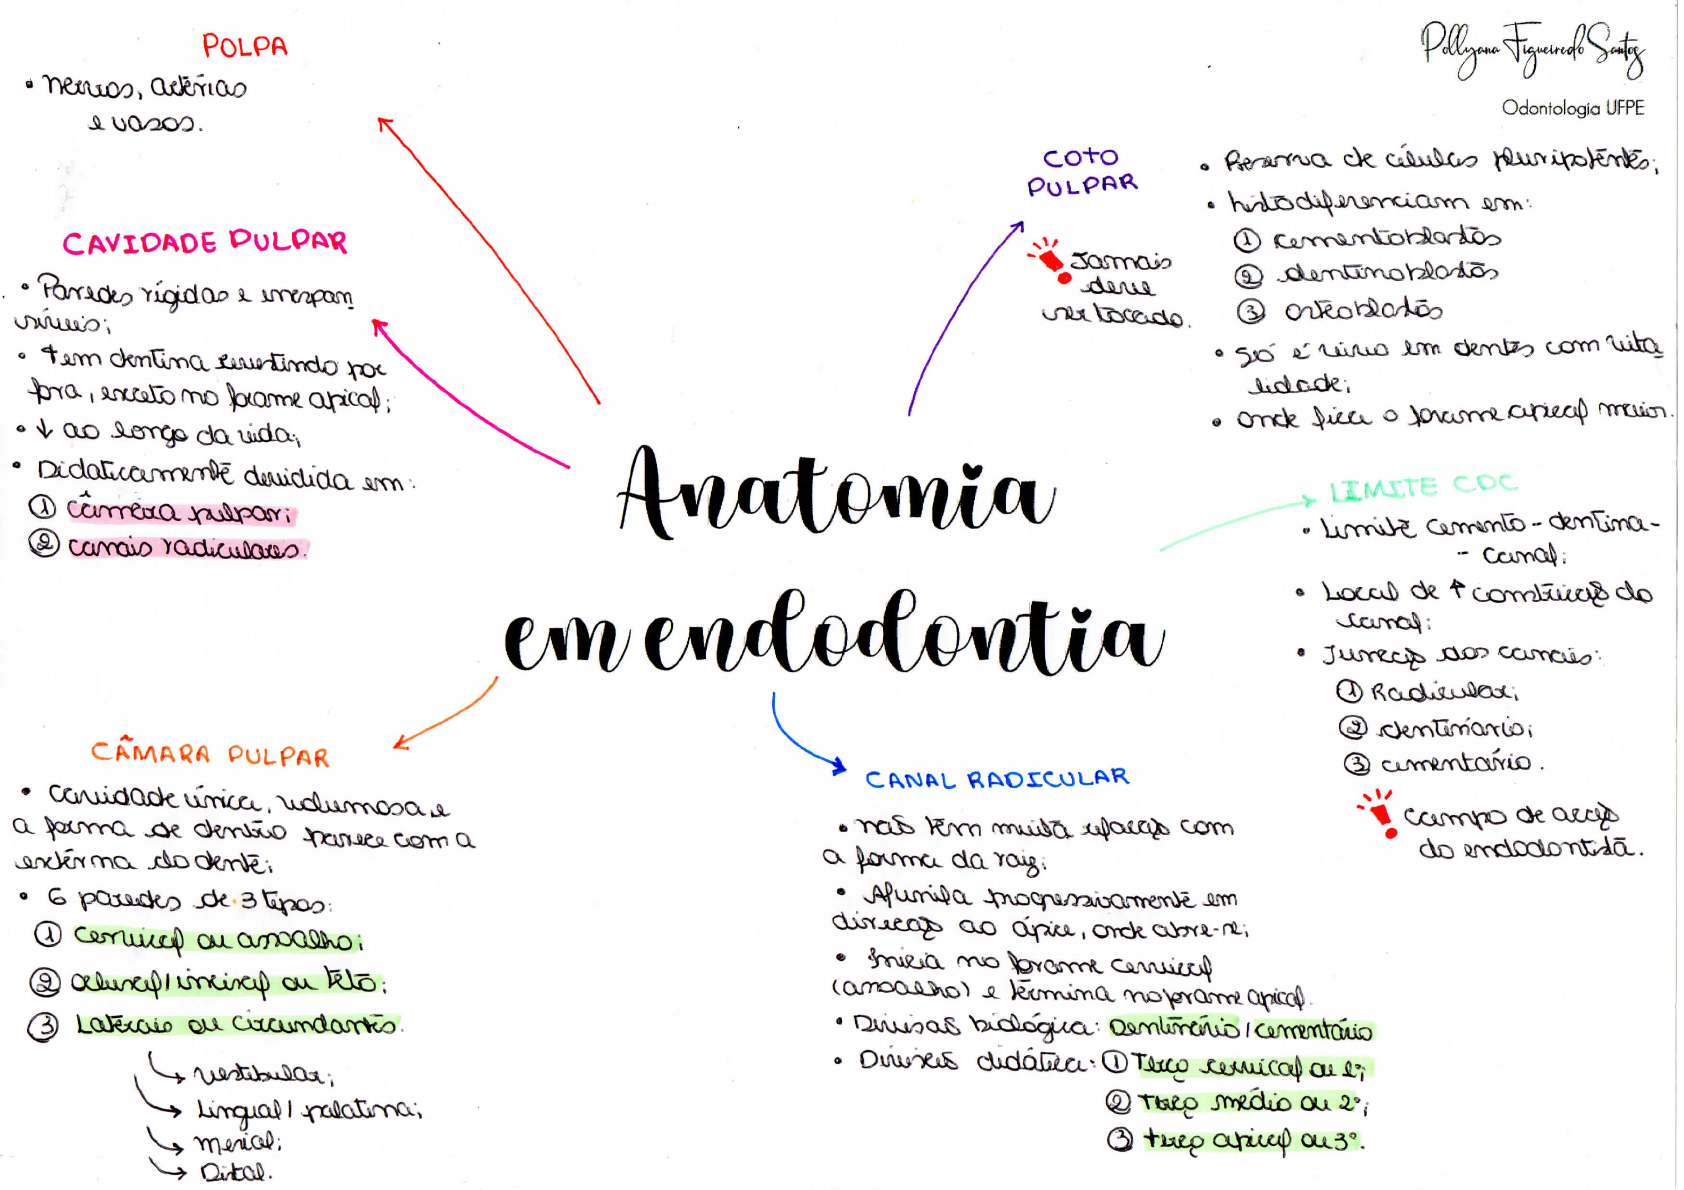 Pollyana Figueiredo Santos
Odontologia UFPE
POLPA
• nervos, artérias
e vasos.
CAVIDADE PULPAR
• Paredes rígidas e inexpan
síveis;
• tem dentina revestindo por
fora, exceto no forame apical;
• ↓ ao longo da vida;
• Didaticamente dividida em:
① câmera pulpar;
② canais radiculares.
COTO
PULPAR
Jamais
deve
ser tocado.
• Reserva de células pluripotentes;
• histodiferenciam em:
① cementoblastos
② dentinoblastos
③ osteoblastos
• Só é vivo em dentes com vita
lidade;
• onde fica o forame apical maior.
Anatomia
em endodontia
LIMITE CDC
• Limite cemento-dentina-
- canal;
• Local de ↑ constrição do
canal;
• Junção dos canais:
① Radicular;
② dentinário;
③ cementário.
Campo de acção
do endodontista.
CÂMARA PULPAR
• cavidade única, volumosa e
a forma de dentro parece com a
externa do dente;
• 6 paredes de 3 tipos:
① Cervical ou assoalho;
② oclusal/incisal ou teto;
③ Laterais ou circundantes.
↳ vestibular;
↳ Lingual/palatina;
↳ Mesial;
↳ Distal.
CANAL RADICULAR
• não tem muita relação com
a forma da raiz;
• Afunila progressivamente em
direção ao ápice, onde abre-se;
• Inicia no forame cervical
(assoalho) e termina no forame apical.
• Divisão biológica: Dentinário/cementário
• Divisão didática: ① Terço cervical ou 1º;
② Terço médio ou 2º;
③ terço apical ou 3º.